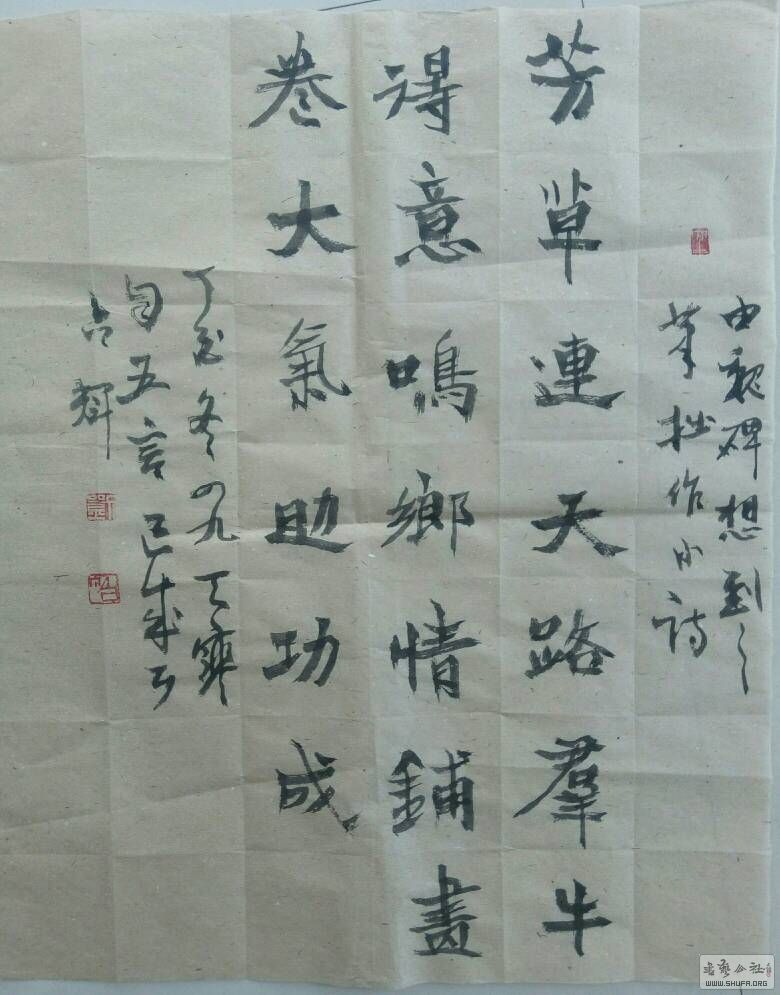 由魏碑想到之
筆拙作小詩
芳草連天路羣牛
得意鳴鄉情鋪畫
卷大氣助功成
丁酉冬四九天寒
自五言
書藝公社
WWW.SHUFA.ORG